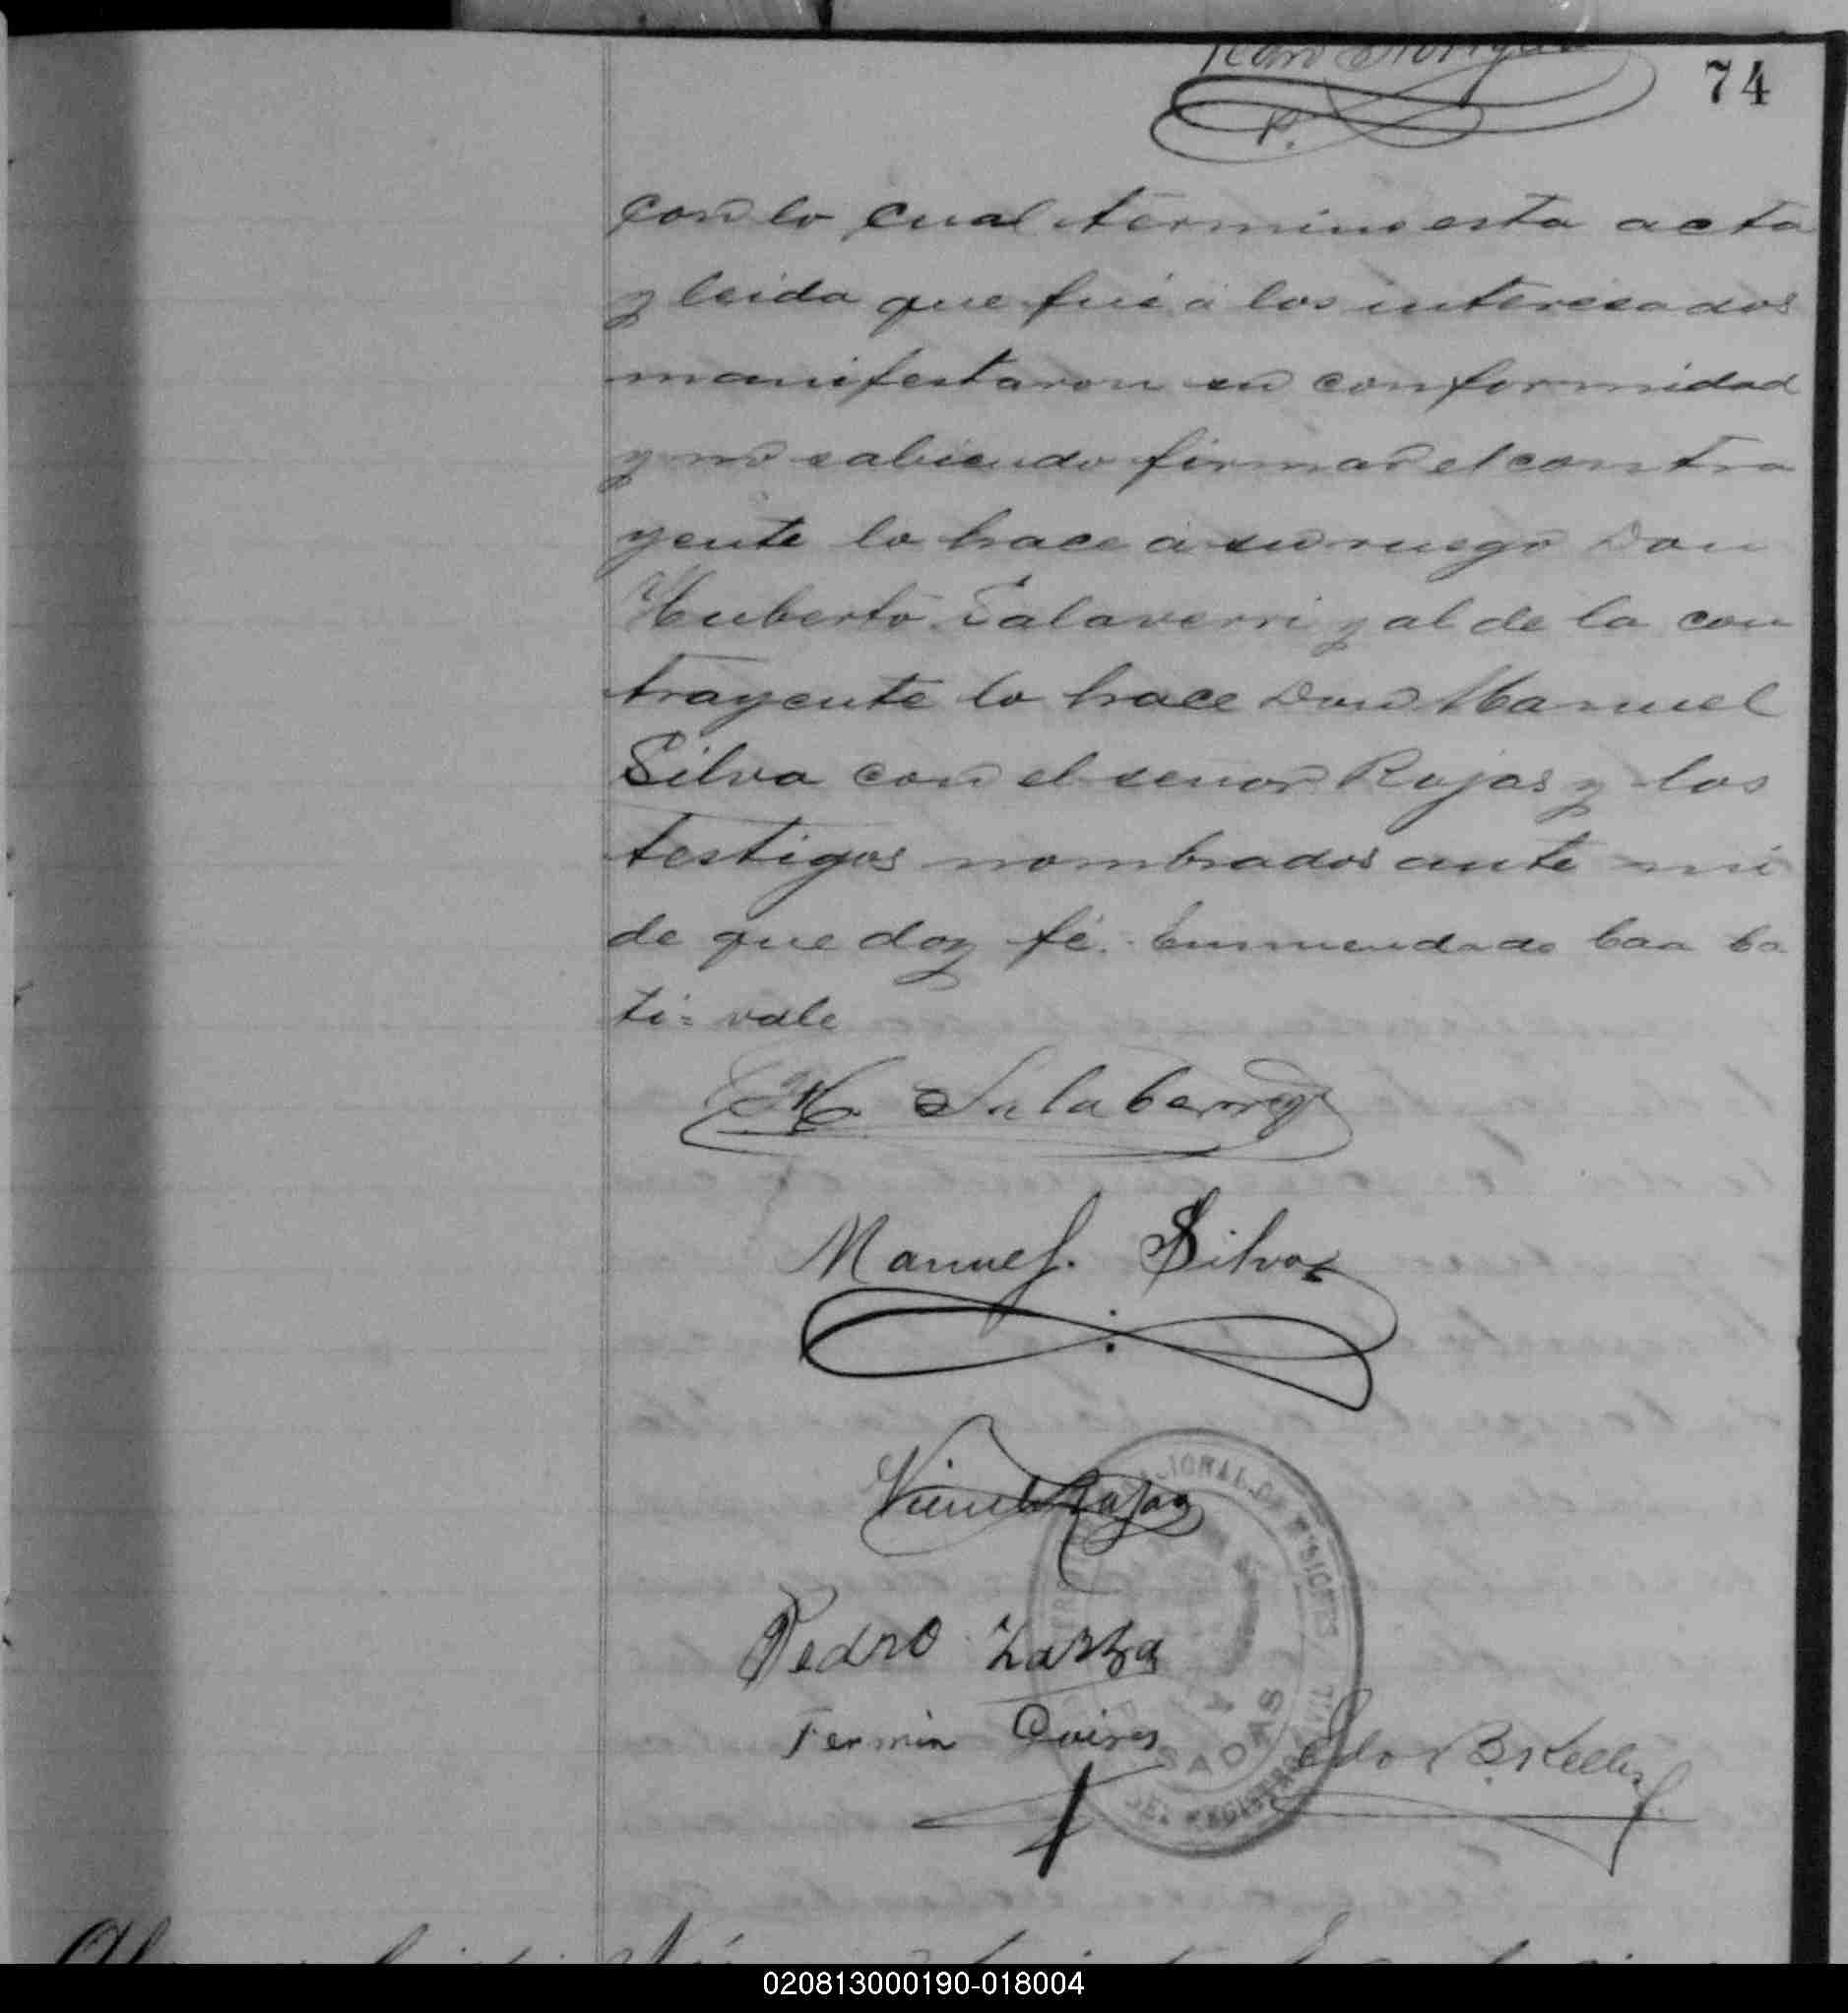 74
P.
con lo cual termino esta acta
y leida que fué á los interesados
manifestaron su conformidad
y no sabiendo firmar el contra
yente lo hace á su ruego Don
Huberto Salaverri y al de la con
trayente lo hace Don Manuel
Silva con el señor Rojas y los
testigos nombrados ante mi
de que doy fé. Enmendado
ti= vale
H. Salaberry
Manuel. Silva
Rojas
Pedro Zarza
Fermin Quires
SADAS
020813000190-018004